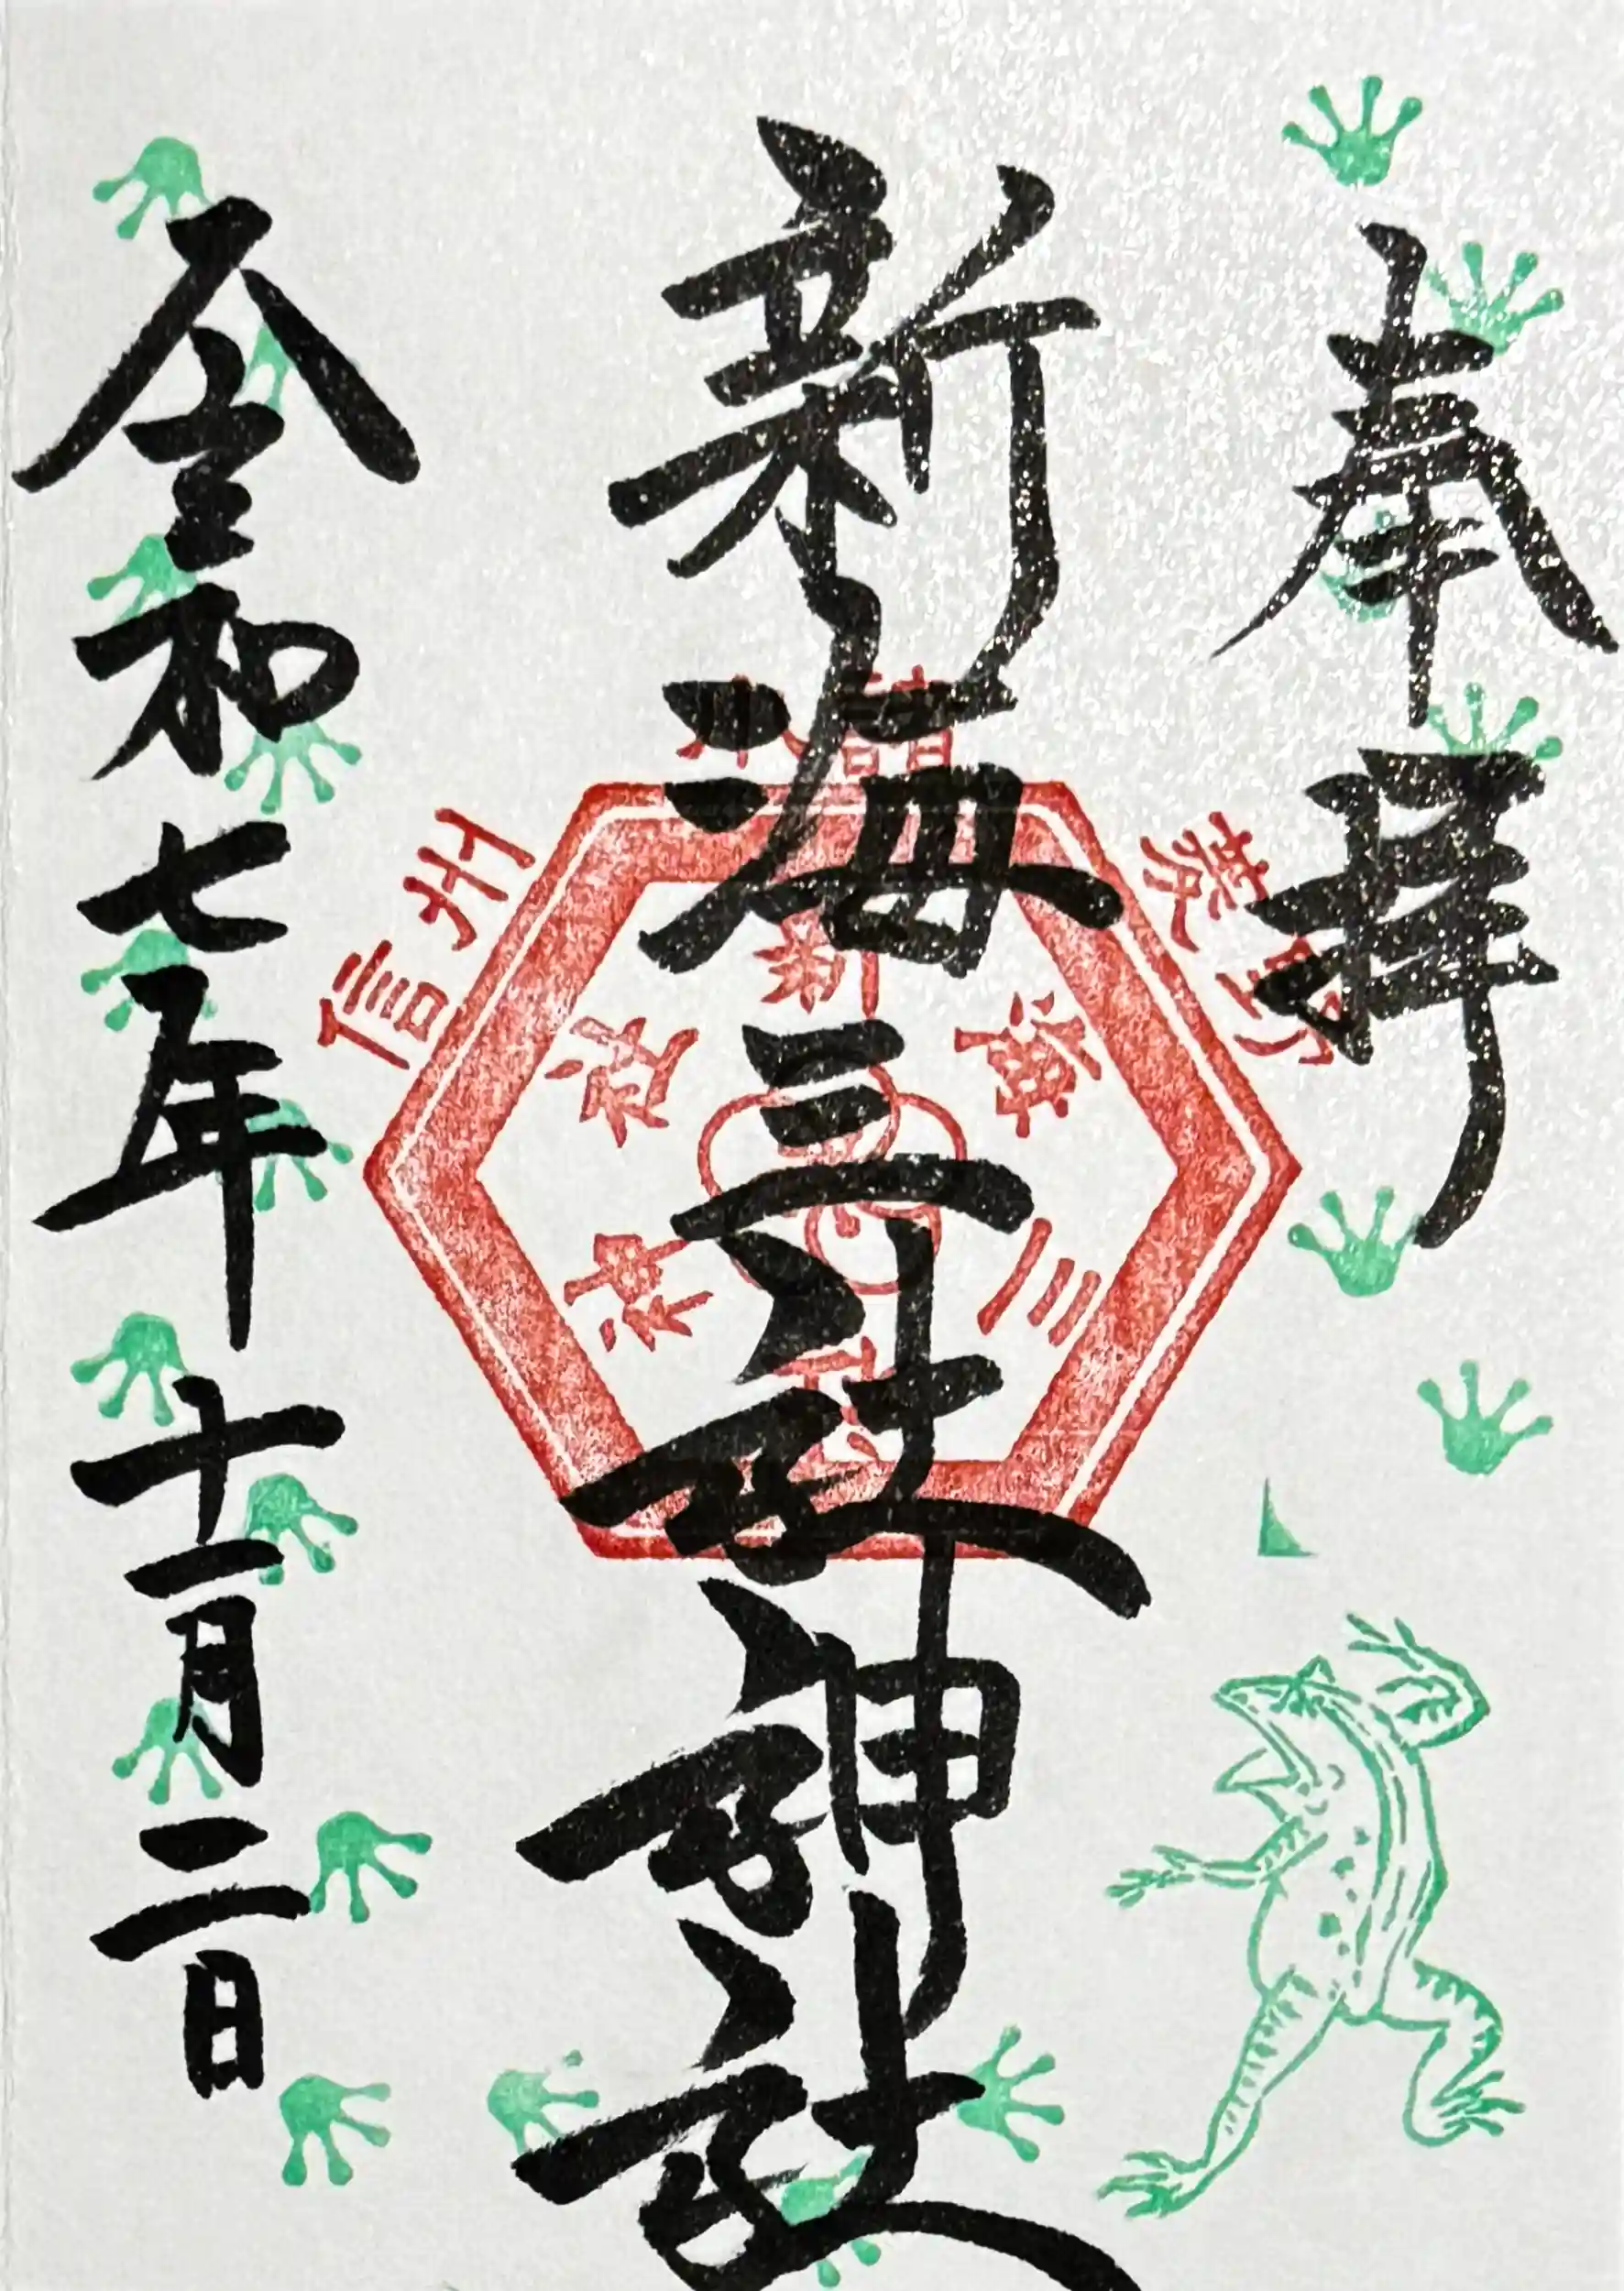 奉拝
新海三社神社
令和七年十一月二日
信州
新海三社神社